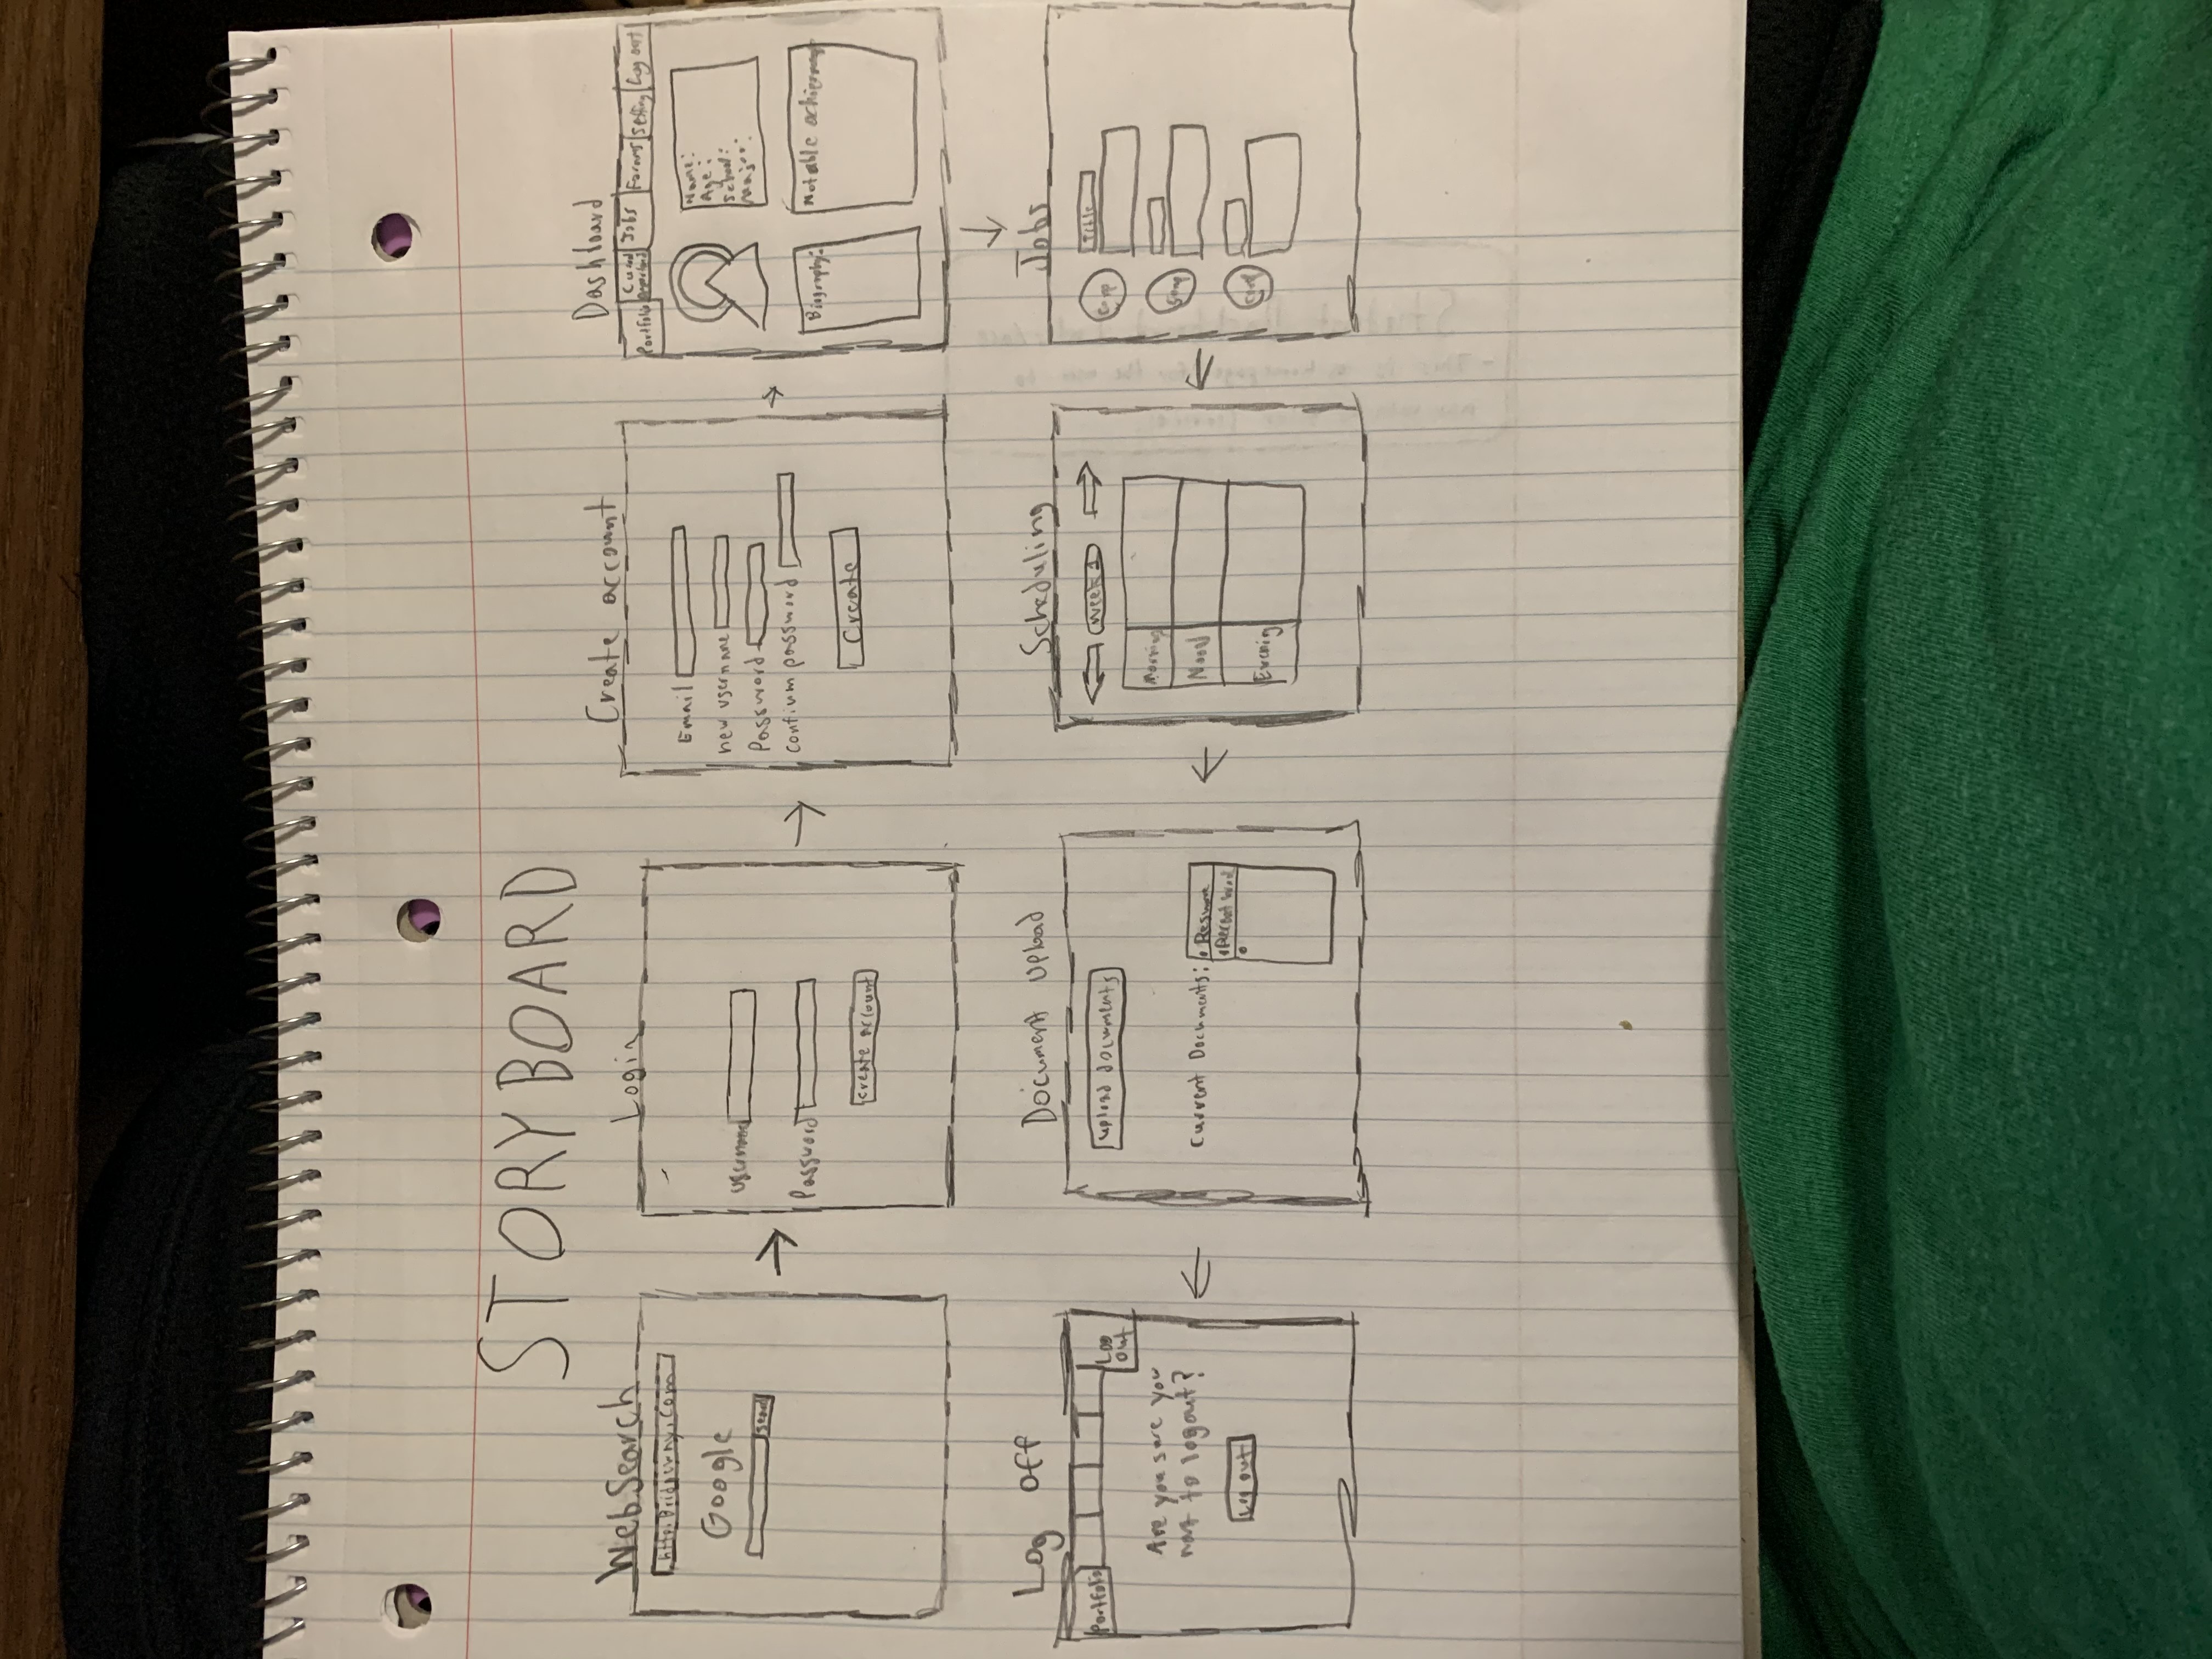 STORYBOARD
WebSearch
Google
Login
username
Password
create account
Create account
Email
new username
Password
confium password
Create
Dashboard
Portfolio
Jobs
Forums
Setting
Log out
Name:
Age:
School:
Major:
Biography:
Notable
Jobs
Title
Comp
Comp
Scheduling
week 1
Morning
Nood
Evening
Document upload
upload documents
Current Documents:
Resume
Log off
Portfolio
Log
out
Are you sure you
to logout?
Log out